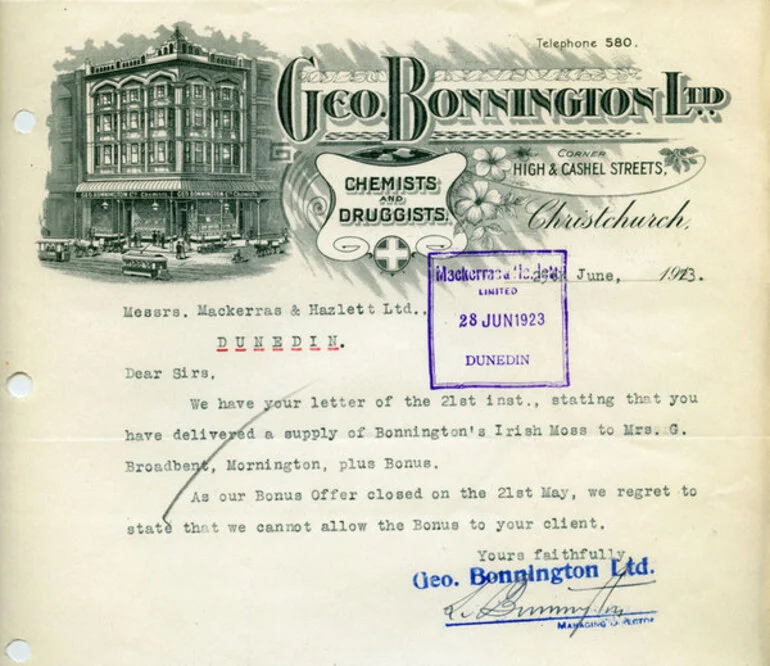 Telephone 580.
GEO. BONNINGTON LTD
CORNER
HIGH & CASHEL STREETS,
CHEMISTS
AND
DRUGGISTS.
Christchurch,
June, 1923.
Mackerras & Hazlett
LIMITED
28 JUN 1923
DUNEDIN
Messrs. Mackerras & Hazlett Ltd.,
DUNEDIN.
Dear Sirs,
We have your letter of the 21st inst., stating that you
have delivered a supply of Bonnington's Irish Moss to Mrs. G.
Broadbent, Mornington, plus Bonus.
As our Bonus Offer closed on the 21st May, we regret to
state that we cannot allow the Bonus to your client.
Yours faithfully,
Geo. Bonnington Ltd.
MANAGING DIRECTOR